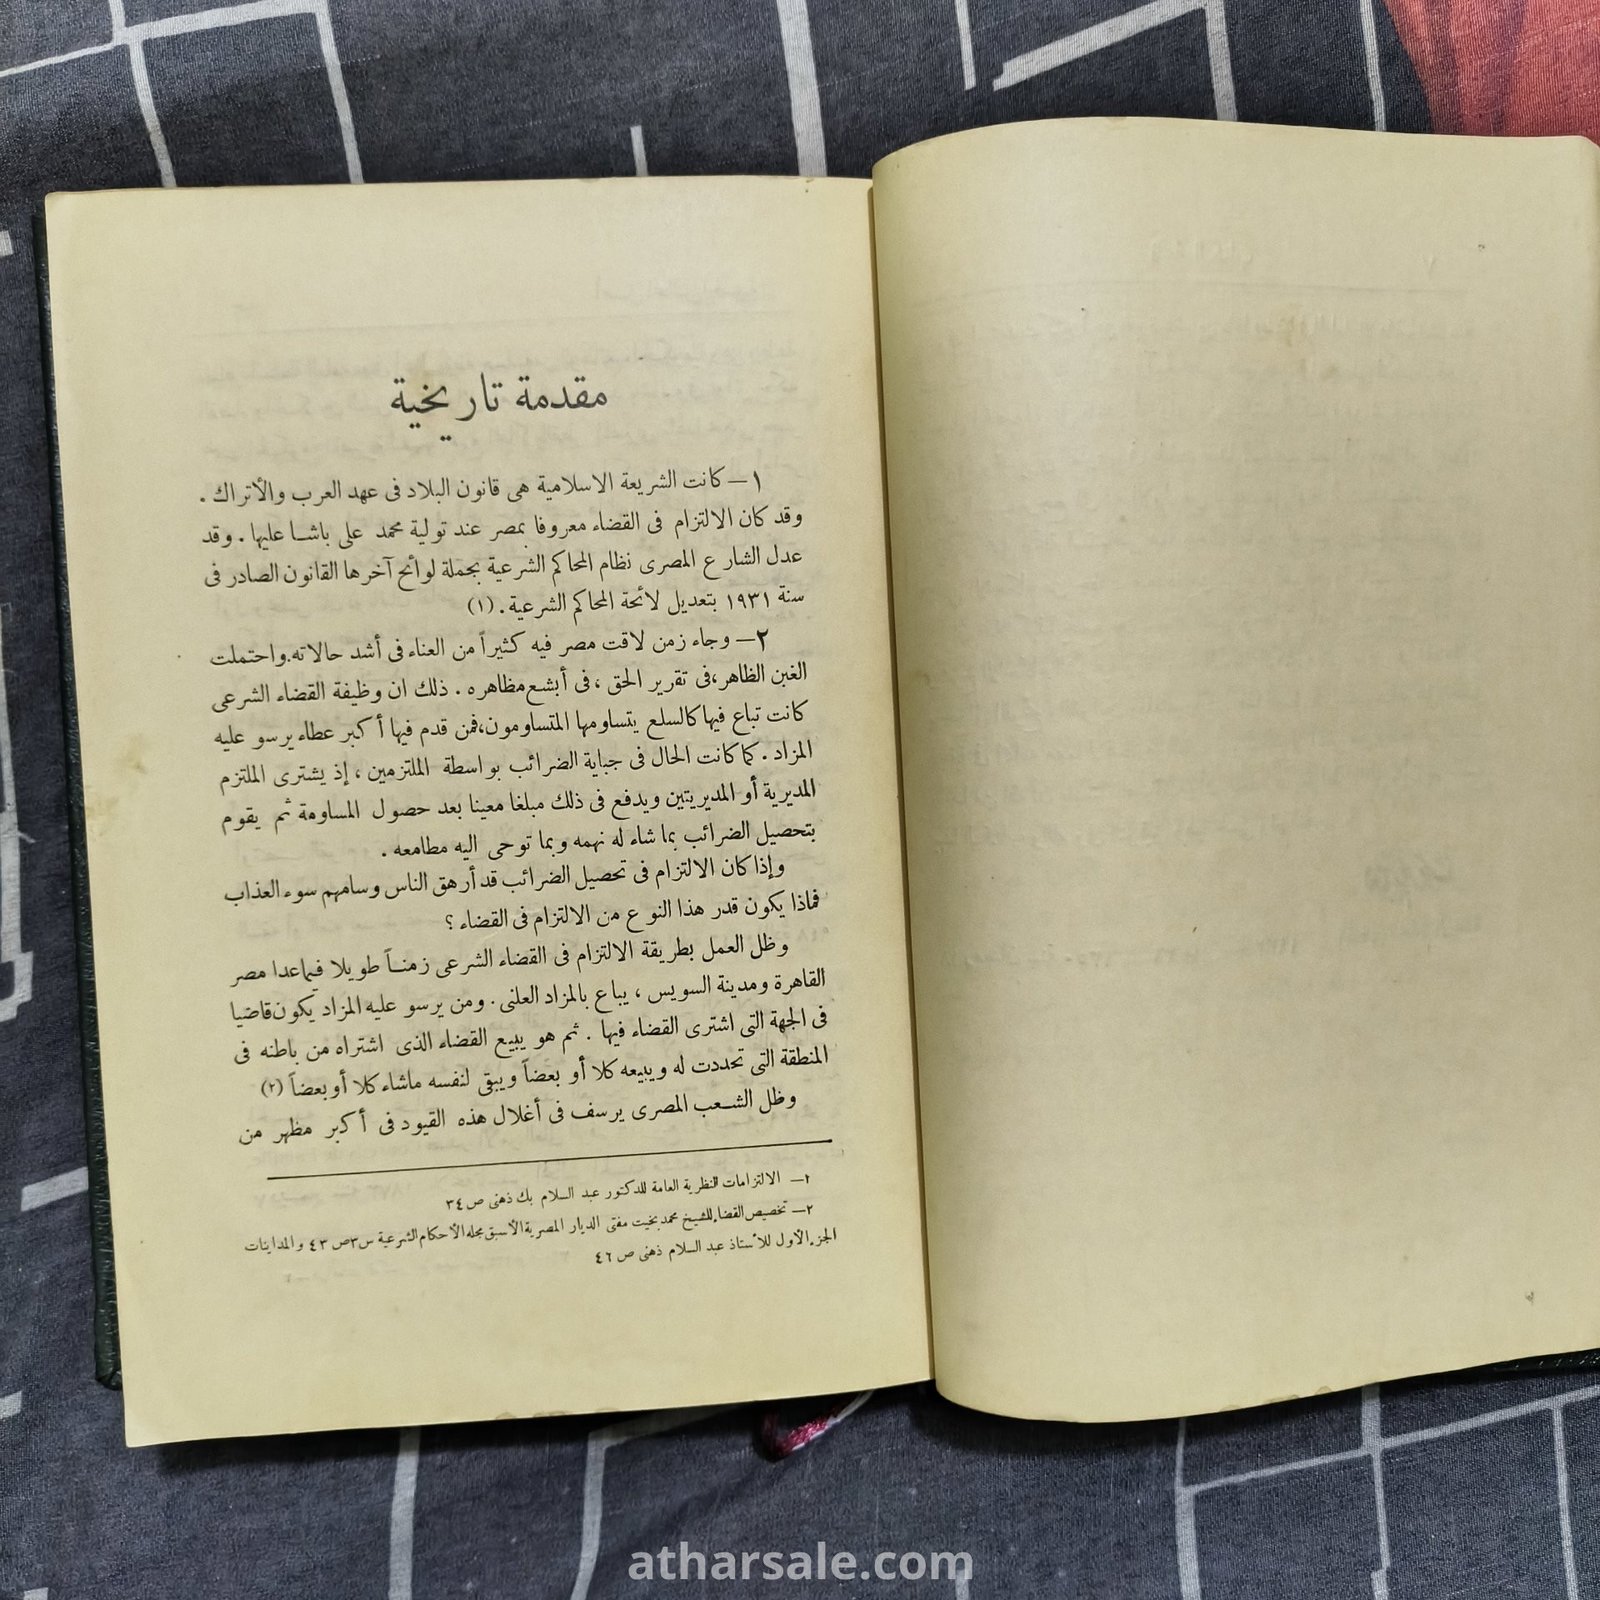 مقدمة تاريخية
١ — كانت الشريعة الاسلامية هى قانون البلاد فى عهد العرب والأتراك .
وقد كان الالتزام فى القضاء معروفا بمصر عند تولية محمد على باشا عليها . وقد
عدل الشارع المصرى نظام المحاكم الشرعية بجملة لوائح آخرها القانون الصادر فى
سنة ١٩٣١ بتعديل لائحة المحاكم الشرعية . (١)
٢ — وجاء زمن لاقت مصر فيه كثيراً من العناء فى أشد حالاته. واحتملت
الغبن الظاهر، فى تقرير الحق ، فى أبشع مظاهره . ذلك ان وظيفة القضاء الشرعى
كانت تباع فيها كالسلع يتساومها المتساومون، فمن قدم فيها أكبر عطاء يرسو عليه
المزاد . كما كانت الحال فى جباية الضرائب بواسطة الملتزمين ، إذ يشترى الملتزم
المديرية أو المديريتين ويدفع فى ذلك مبلغا معينا بعد حصول المساومة ثم يقوم
بتحصيل الضرائب بما شاء له نهمه وبما توحى اليه مطامعه .
وإذا كان الالتزام فى تحصيل الضرائب قد أرهق الناس وسامهم سوء العذاب
فماذا يكون قدر هذا النوع من الالتزام فى القضاء ؟
وظل العمل بطريقة الالتزام فى القضاء الشرعى زمنـاً طويلا فيماعدا مصر
القاهرة ومدينة السويس ، يباع بالمزاد العلنى . ومن يرسو عليه المزاد يكون قاضيا
فى الجهة التى اشترى القضاء فيها . ثم هو يبيع القضاء الذى اشتراه من باطنه فى
المنطقة التى تحددت له ويبيعه كلا أو بعضاً ويبقى لنفسه ماشاء كلا أو بعضاً (٢)
وظل الشـعب المصرى يرسف فى أغلال هذه القيود فى أكبر مظهر من
١ — الالتزامات النظرية العامة للدكتور عبد السلام بك ذهنى ص ٣٤
٢ — تخصيص القضاء للشيخ محمد بخيت مفتى الديار المصرية الأسبق مجلة الأحكام الشرعية س ٣ ص ٤٣ والمداينات
الجزء الأول للأستاذ عبد السلام ذهنى ص ٤٦
atharsale.com